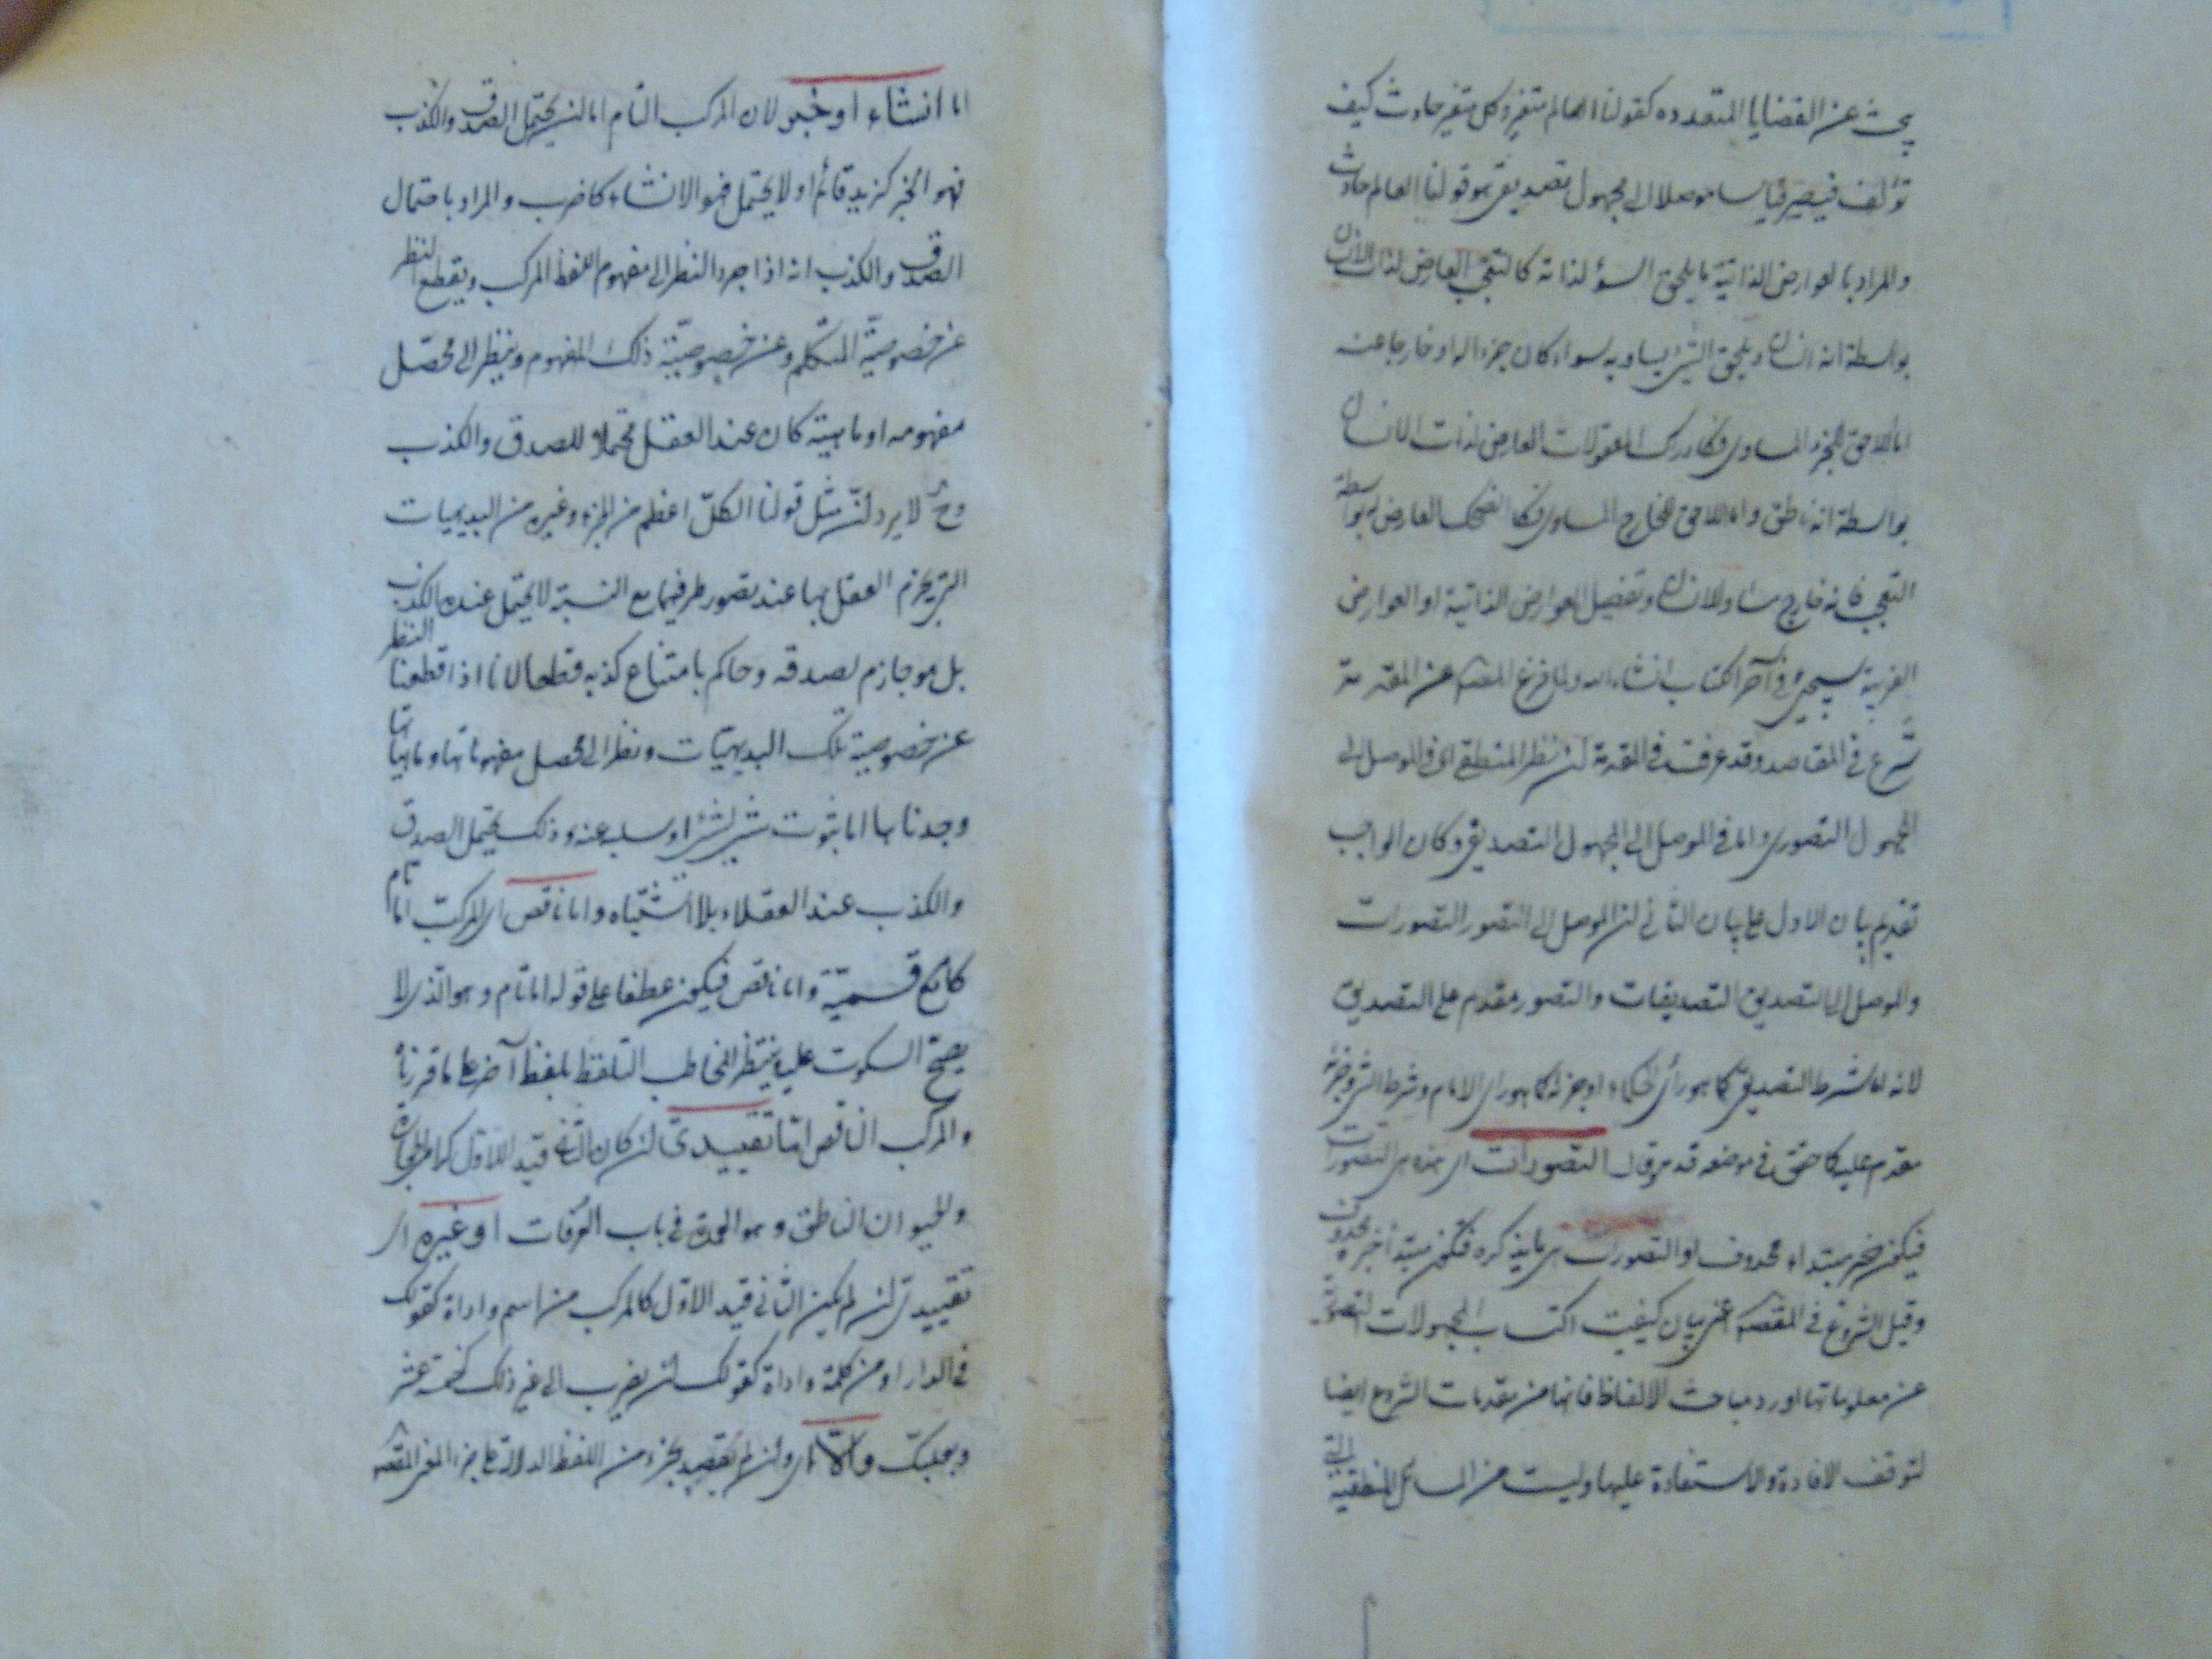 يبحث عن القضايا المتعدده كقولنا العالم متغير وكل متغير حادث كيف
تؤلف فيصير قياسا موصلا الى مجهول تصديقى هو قولنا العالم حادث
والمراد بالعوارض الذاتية ما يلحق الشئ لذاته كالتعجب العارض لذات الانسان
بواسطة انه انسان ويلحق الشئ يساويه سواء كان جزء اله او خارجا عنه
اما اللاحق للجزء المساوى فكادراك المعقولات العارض لذات الانسان
بواسطة انه ناطق واما اللاحق للخارج المساوى فكالضحك العارض له بواسطة
التعجب فانه خارج مساو للانسان وتفصيل العوارض الذاتية او العوارض
الغريبة سيجئ فى آخر الكتاب انشاء الله ولما فرغ المصـ عن المقدمة
شرع فى المقاصد وقد عرفت فى المقدمة لن نظر المنطقى اما فى الموصل الى
المجهول التصورى واما فى الموصل الى المجهول التصديقى وكان الواجب
تقديم بيان الاول على بيان الثانى لان الموصل الى التصور التصورات
والموصل الى التصديق التصديقات والتصور مقدم على التصديق
لانه اما شرط التصديق كما هو رأى الحكماء او جزئه كما هو راى الامام وشرط الشئ وجزئه
مقدم عليه كما حقق فى موضعه قدم وقال التصورات اى هذه هى التصورات
فيكون خبر مبتداء محذوف او التصورات هى ما يذكره فتكون مبتدأ خبره محذوف
وقبل الشروع فى المقصـ اعنى بيان كيفيت اكتساب المجهولات التصورية
عن معلوماتها اورد مباحث الالفاظ فانها من مقدمات الشروع ايضا
لتوقف الافادة والاستفادة عليها وليست من المسائل المنطقية التى
اما انشاء او خبر لان المركب التام اما لن يحتمل الصدق والكذب
فهو الخبر كزيد قائم او لا يحتمل فهو الانشاء كاضرب والمراد باحتمال
الصدق والكذب انه اذا جرد النظر الى مفهوم اللفظ المركب ويقطع النظر
عن خصوصية المتكلم وعن خصوصيّة ذلك المفهوم وينظر الى محصّل
مفهومه او ماهيته كان عند العقل محتملا للصدق والكذب
وح لا يرد لنّ مثل قولنا الكلّ اعظم من الجزء وغيره من البديهيات
التى يجزم العقل بها عند تصور طرفيها مع النسبة لا يحتمل عنده الكذب
بل هو جازم لصدقه وحاكم بامتناع كذبه قطعا لانا اذا قطعنا النظر
عن خصوصية تلك البديهيّات ونظر الى محصل مفهوماتها وماهياتها
وجدنا بها اما ثبوت شئ لشئ او سلبه عنه وذلك يحتمل الصدق
والكذب عند العقلاء بلا اشتباه واما ناقص اى المركب اما تام
كما مع قسميّة واما ناقص فيكون عطفا على قوله اما تام وهو الذى لا
يصح السكوت عليه وينتظر المخاطب التلفظ بلفظ آخر على ما قررناه
والمركب الناقص امّا تقييدىّ لن كان الثانى قيد اللاول كرامى الحجارة
والحيوان الناطق وهو العمدة فى باب المعرّفات او غيره اى
تقييدى لن لم يكن الثانى قيد الاول كالمركب من اسم واداة كقولك
فى الدار او من كلمة واداة كقولك لن يضرب الى غير ذلك كخمسة عشر
وبعلبك والاّ اى ولن لم يقصد بجزء من اللفظ الدلالة على جزء المعنى المقصـ